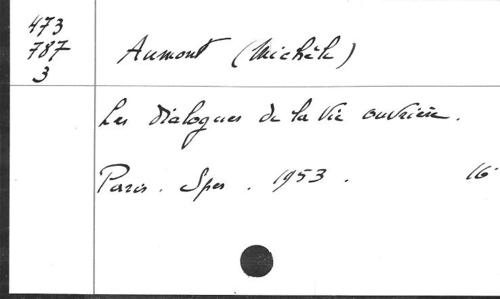 473
787
3
Aumont (Michèle)
Les dialogues de la vie ouvrière.
Paris. Spes. 1953. 16°